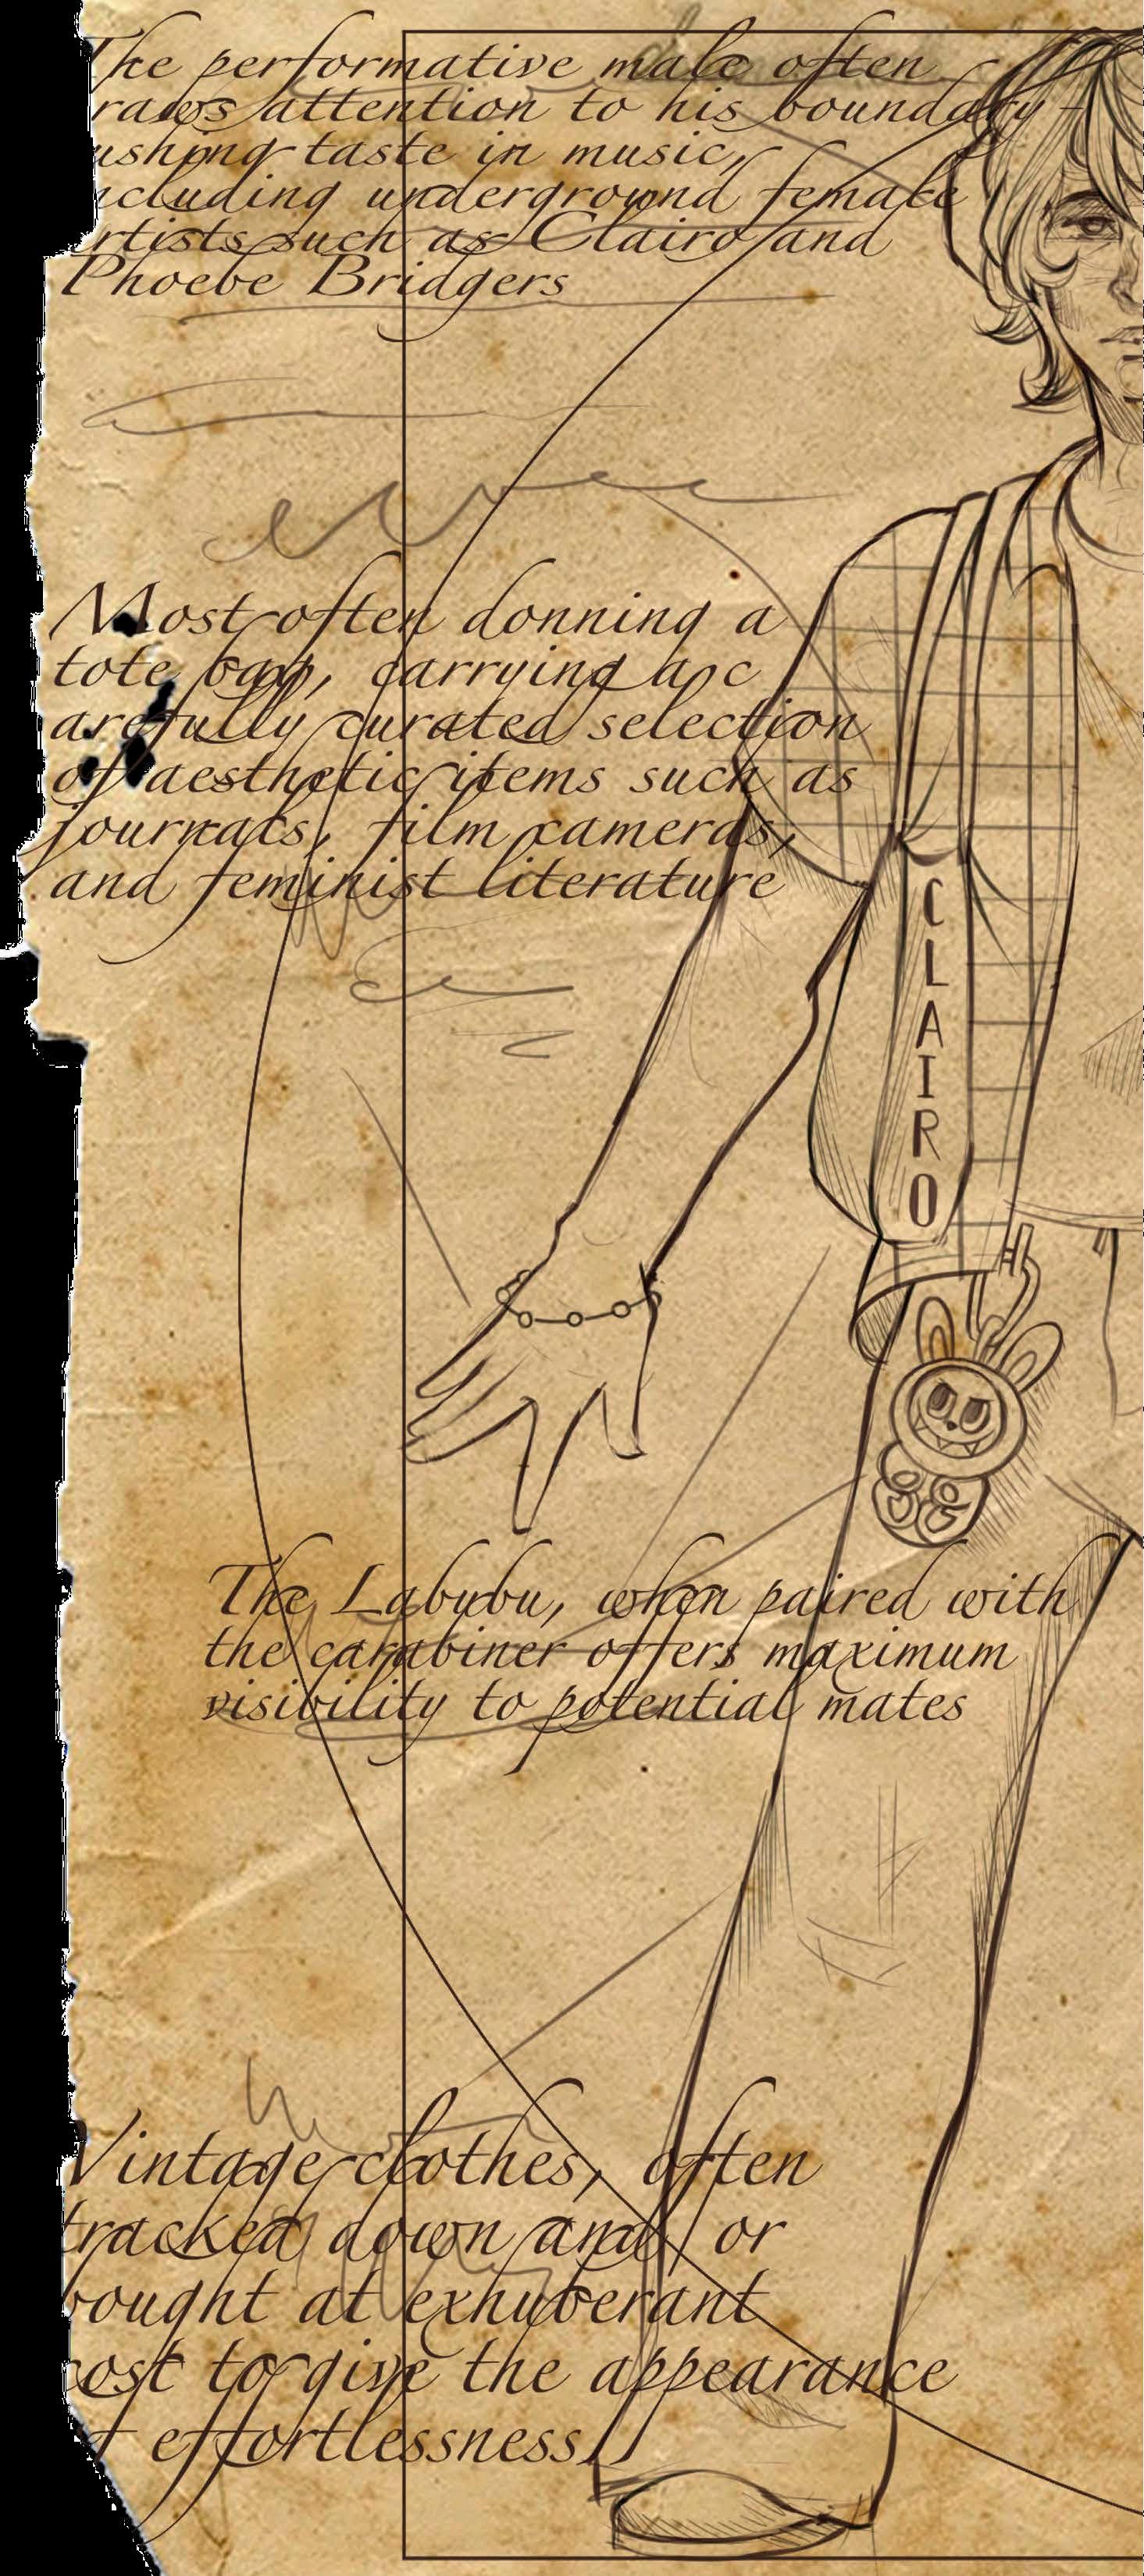 The performative male often
raws attention to his boundary-
ushing taste in music,
ncluding underground female
rtists such as Clairo and
Phoebe Bridgers
Most often donning a
tote bag, carrying a c
arefully curated selection
of aesthetic items such as
journals, film cameras,
and feminist literature
CLAIRO
The Labubu, when paired with
the carabiner offers maximum
visibility to potential mates
Vintage clothes, often
tracked down and/or
bought at exhuberant
cost to give the appearance
f effortlessness